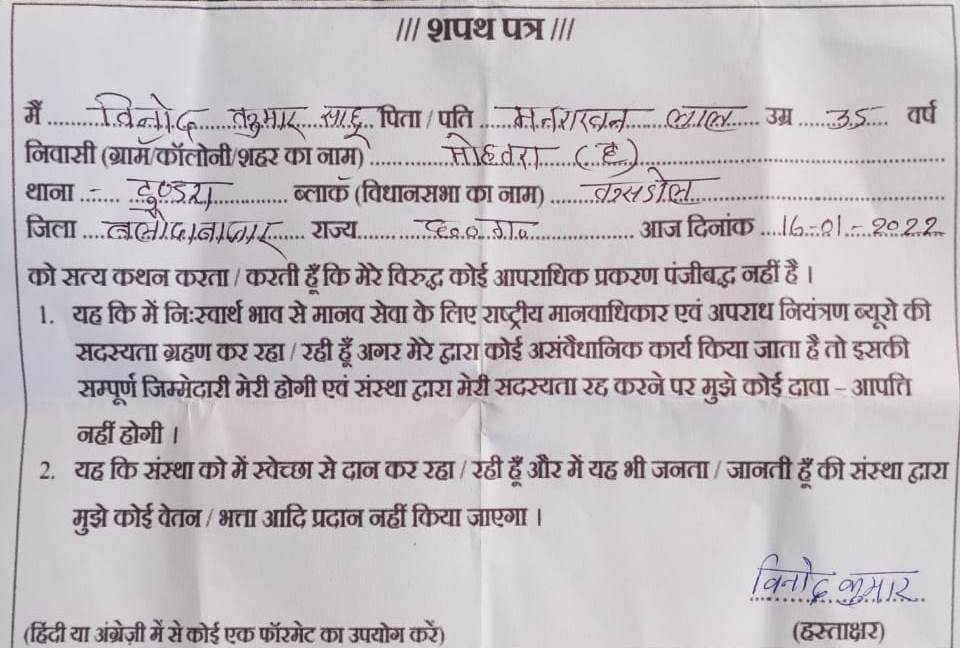 /// शपथ पत्र ///
मैं ....विनोद कुमार साहु.. पिता / पति ..मनराखन लाल.... उम्र ....35.... वर्ष
निवासी (ग्राम/कॉलोनी/शहर का नाम) ..........मोहतरा (ह)..........
थाना .- टुण्डरा.......... ब्लाक (विधानसभा का नाम) ....कसडोल..........
जिला ...बलौदाबाजार.... राज्य.......छ०ग०.......... आज दिनांक ...16-01-2022
को सत्य कथन करता / करती हूँ कि मेरे विरुद्ध कोई आपराधिक प्रकरण पंजीबद्ध नहीं है ।
1. यह कि में निःस्वार्थ भाव से मानव सेवा के लिए राष्ट्रीय मानवाधिकार एवं अपराध नियंत्रण ब्यूरो की
सदस्यता ग्रहण कर रहा / रही हूँ अगर मेरे द्वारा कोई असंवैधानिक कार्य किया जाता है तो इसकी
सम्पूर्ण जिम्मेदारी मेरी होगी एवं संस्था द्वारा मेरी सदस्यता रद्द करने पर मुझे कोई दावा – आपति
नहीं होगी ।
2. यह कि संस्था को में स्वेच्छा से दान कर रहा / रही हूँ और में यह भी जनता / जानती हूँ की संस्था द्वारा
मुझे कोई वेतन / भत्ता आदि प्रदान नहीं किया जाएगा ।
विनोद कुमार
(हिंदी या अंग्रेज़ी में से कोई एक फॉरमेट का उपयोग करें) (हस्ताक्षर)